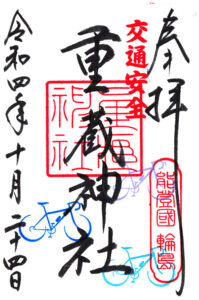 奉拝
能登國 輪島
交通安全
重蔵神社
令和四年十月二十四日